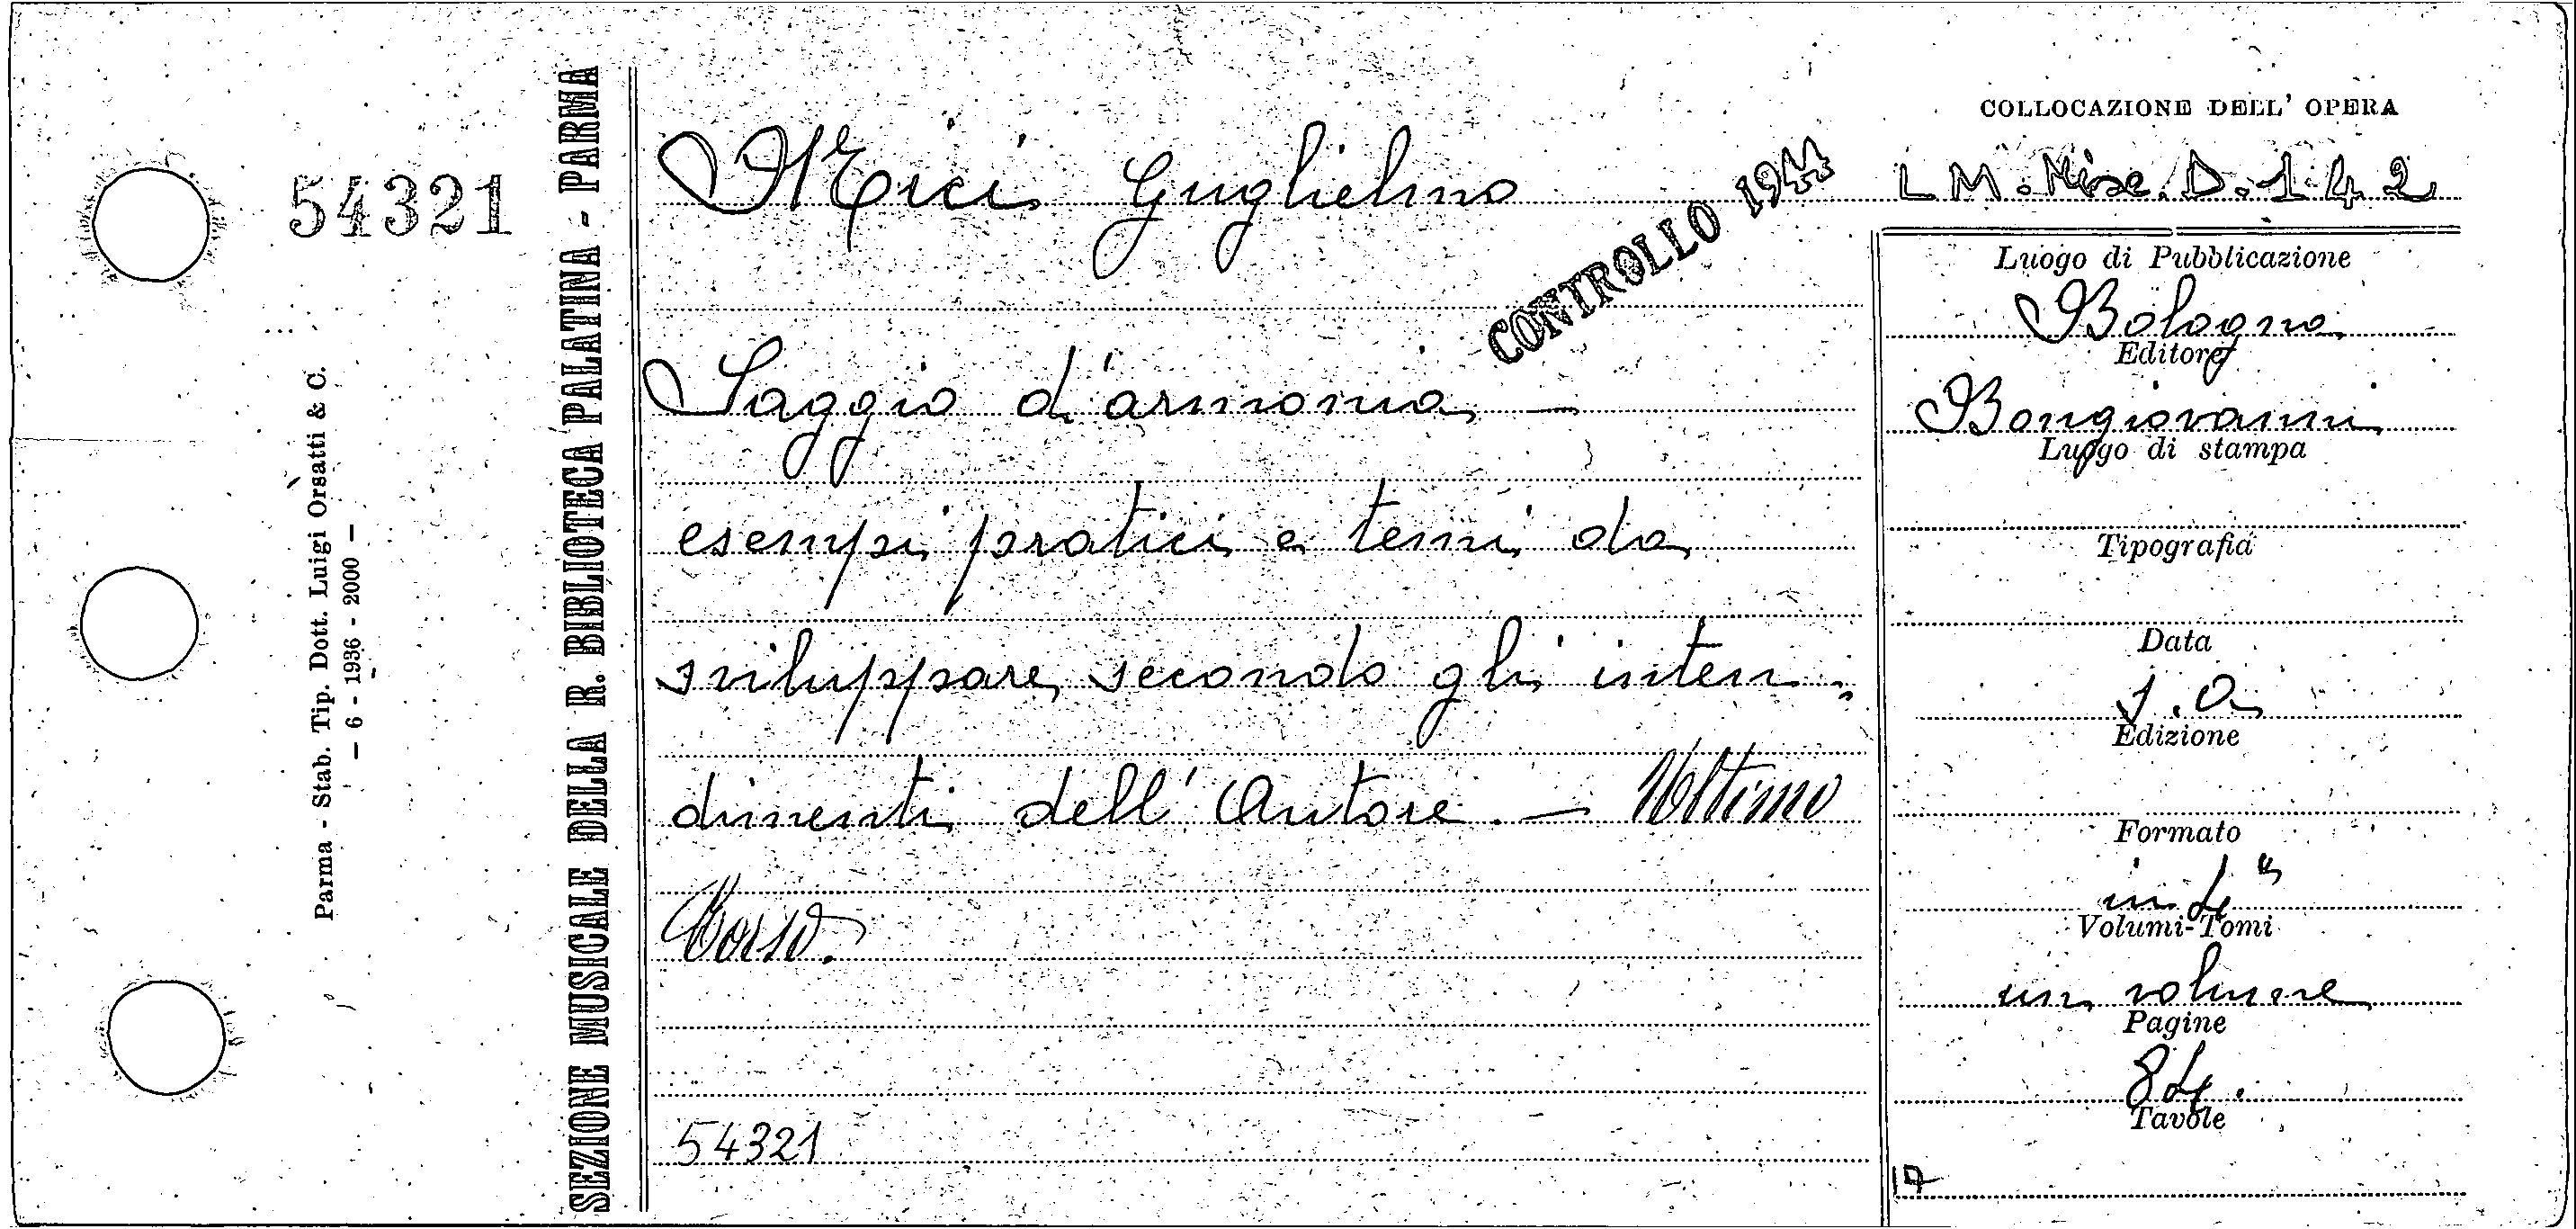 54321
Parma - Stab. Tip. Dott. Luigi Orsatti & C.
— 6 - 1936 - 2000 —
SEZIONE MUSICALE DELLA R. BIBLIOTECA PALATINA - PARMA
Guglielmo
CONTROLLO 1944
Saggio d'armonia —
esempi pratici e temi da
sviluppare secondo gli inten-
dimenti dell'Autore. — Ultimo
Corso.
54321
COLLOCAZIONE DELL' OPERA
LM. Misc. D. 142
Luogo di Pubblicazione
Bologna
Editore
Bongiovanni
Luogo di stampa
Tipografia
Data
s. a.
Edizione
Formato
in 4°
Volumi-Tomi
un volume
Pagine
84.
Tavole